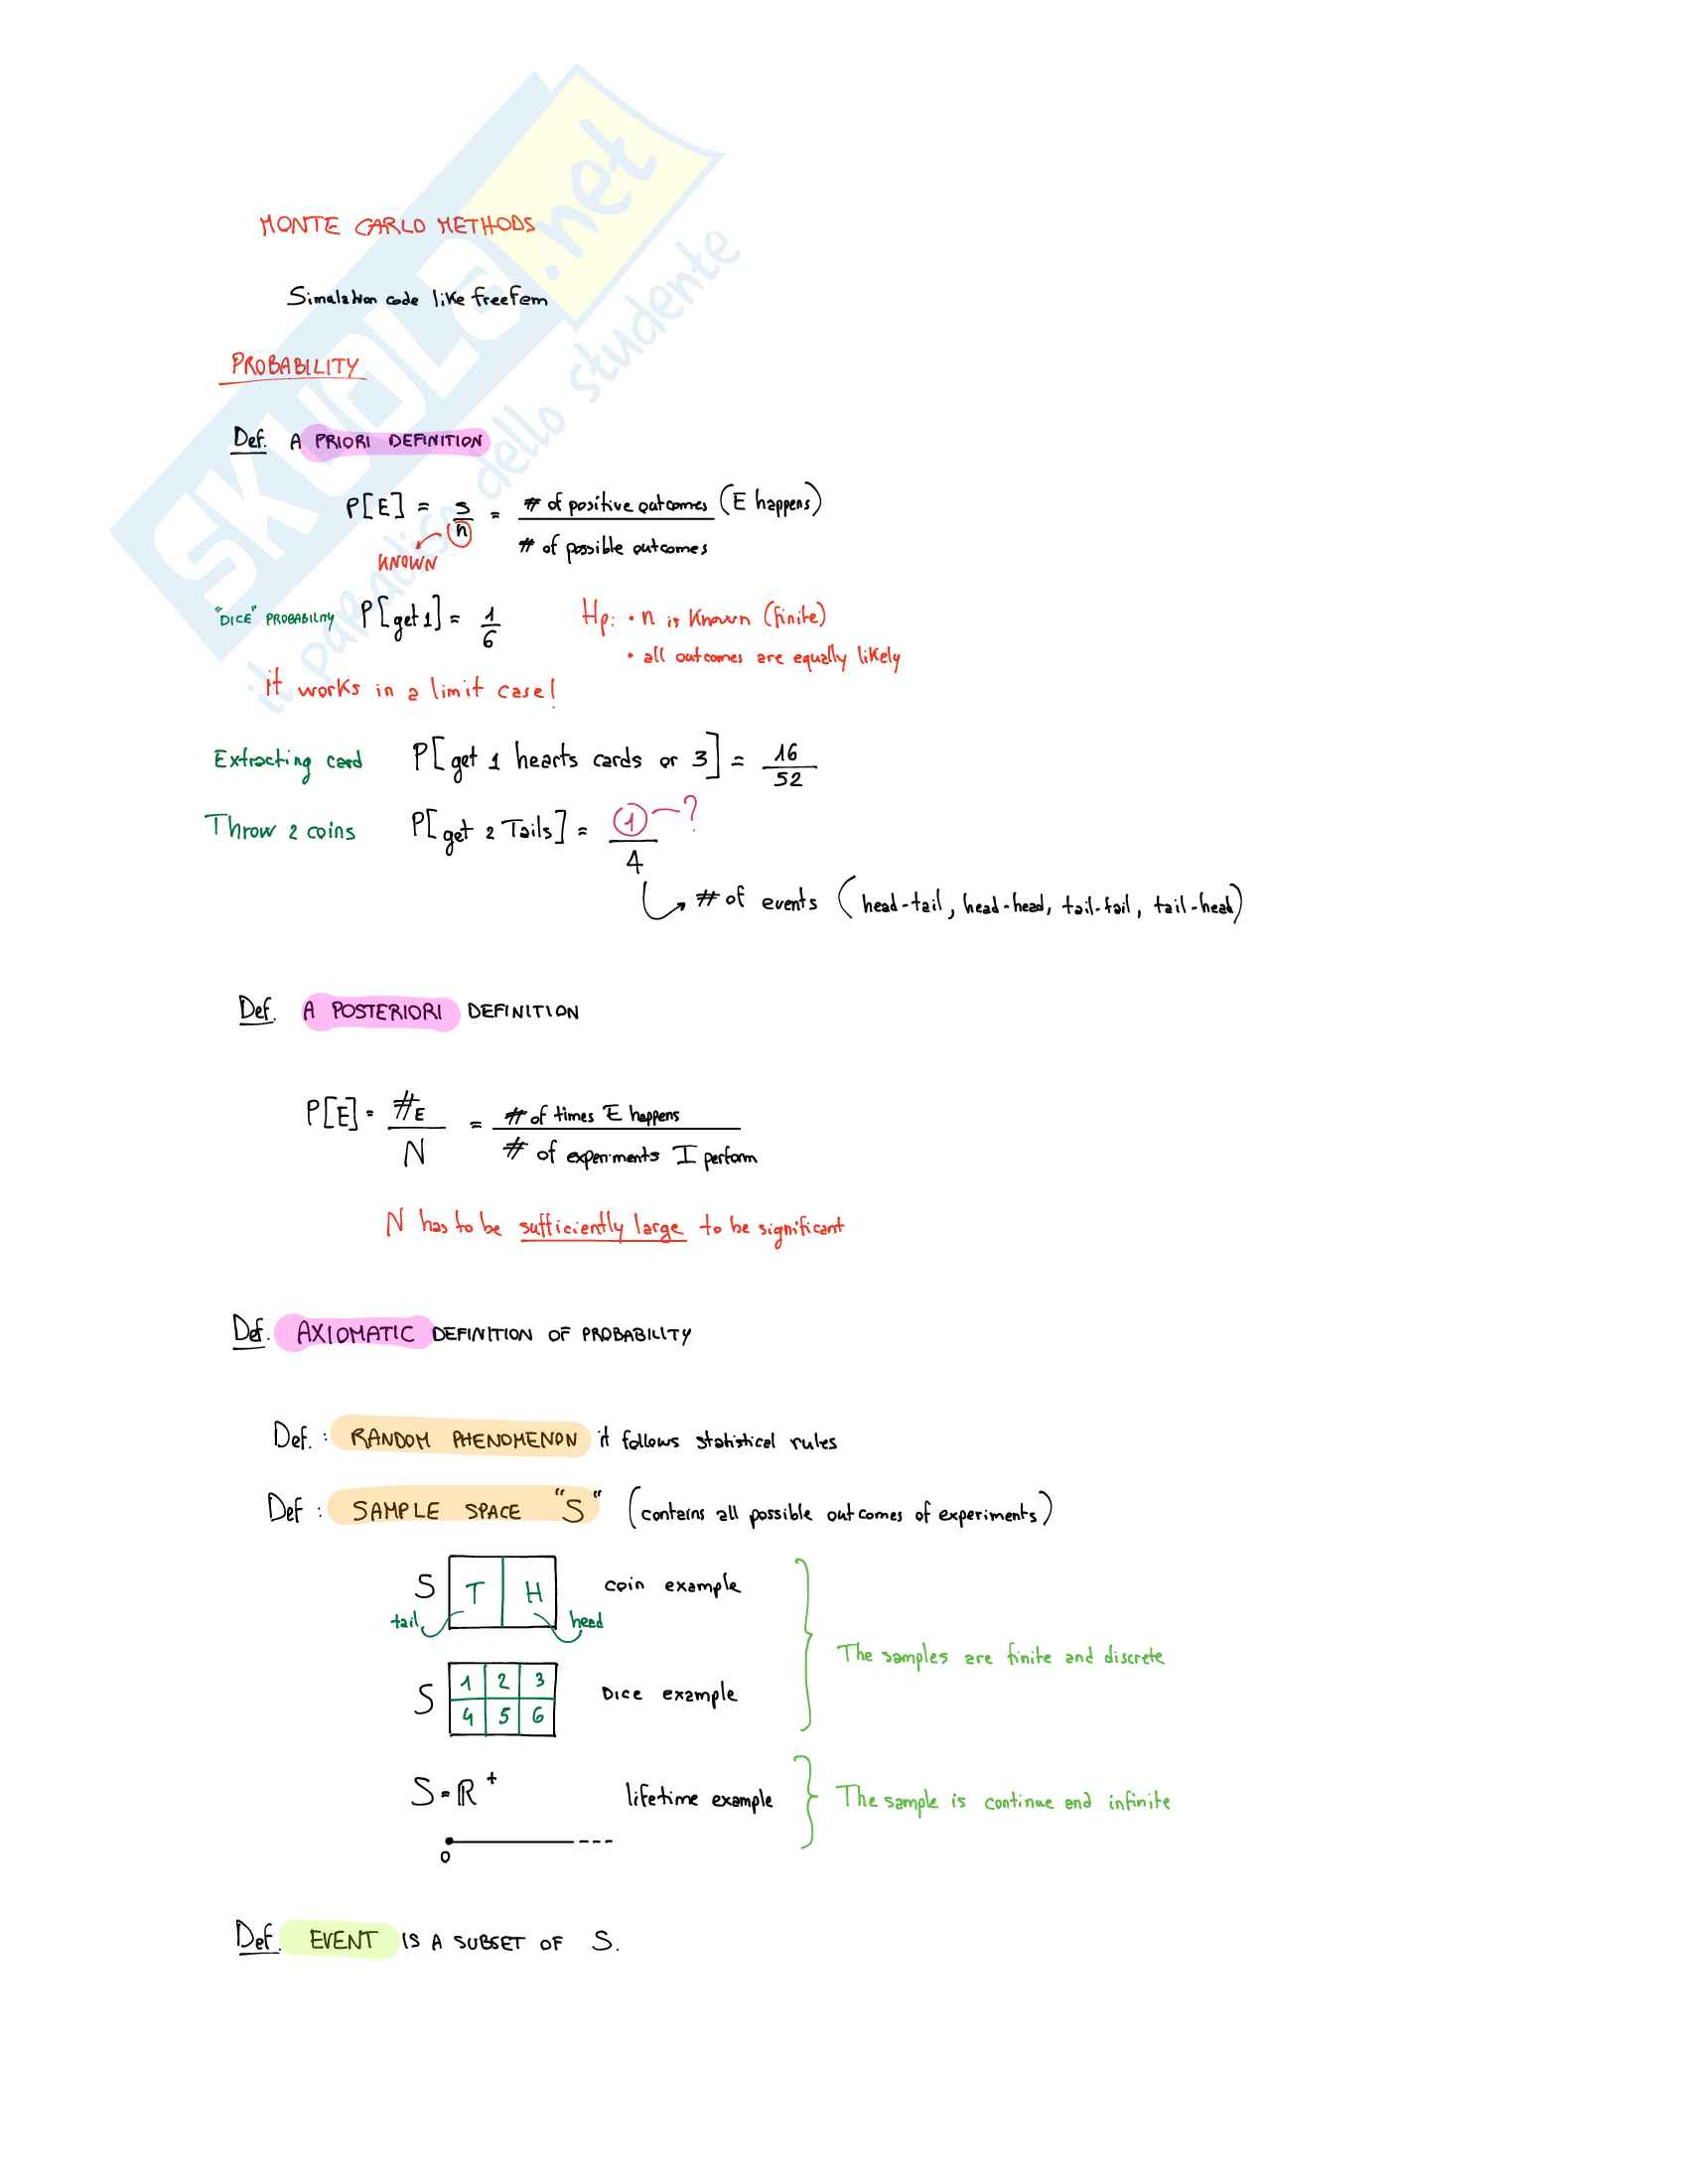 MONTE CARLO METHODS
Simulation code like freefem
PROBABILITY
Def. A PRIORI DEFINITION
P[E] = s/n = # of positive outcomes (E happens) / # of possible outcomes
KNOWN
"DICE" PROBABILITY P[get 1] = 1/6 Hp: • n is known (finite)
• all outcomes are equally likely
it works in a limit case!
Extracting card P[get 1 hearts cards or 3] = 16/52
Throw 2 coins P[get 2 Tails] = 1/4 ?
# of events (head-tail, head-head, tail-tail, tail-head)
Def. A POSTERIORI DEFINITION
P[E] = #E/N = # of times E happens / # of experiments I perform
N has to be sufficiently large to be significant
Def. AXIOMATIC DEFINITION OF PROBABILITY
Def. : RANDOM PHENOMENON it follows statistical rules
Def : SAMPLE SPACE "S" (contains all possible outcomes of experiments)
S T H coin example
tail head
The samples are finite and discrete
S 1 2 3 DICE example
4 5 6
S = ℝ+ lifetime example The sample is continue and infinite
0
Def. EVENT IS A SUBSET OF S.
SKUOLA.net
il paradiso dello studente